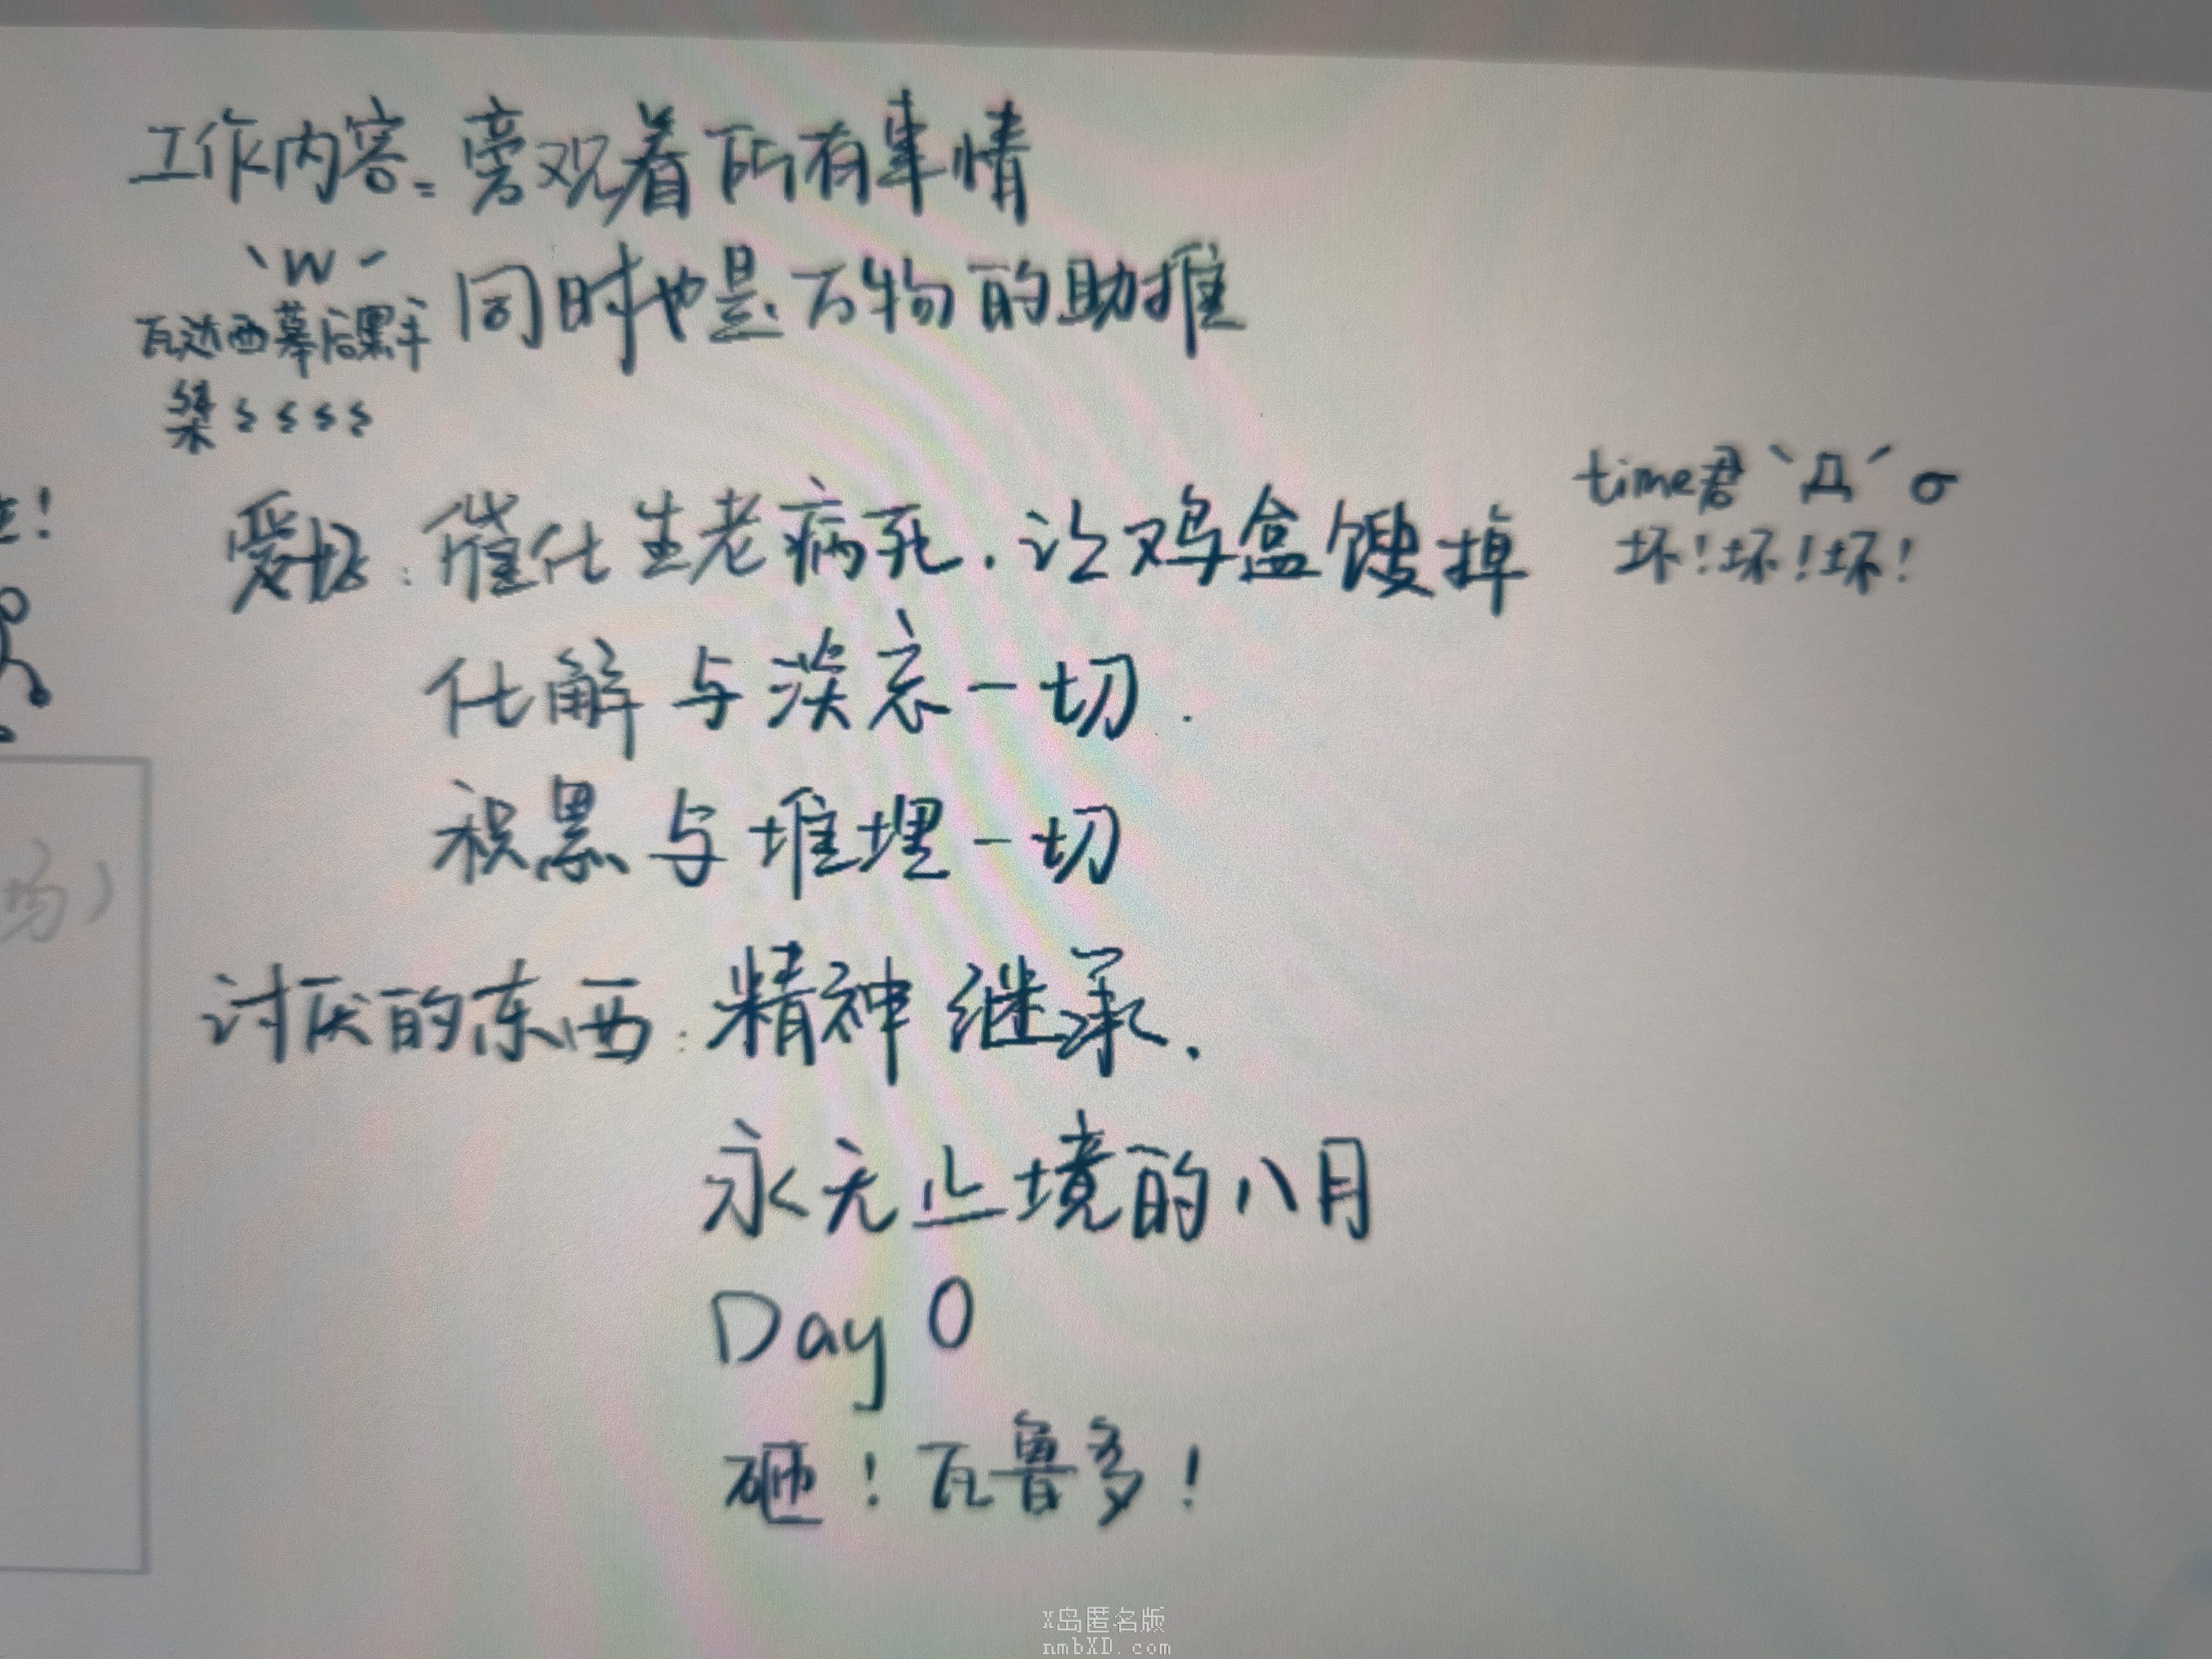 工作内容：旁观着所有事情
同时也是万物的助推
`w´
瓦达西幕后黑手
桀ssss
time君`Д´σ
坏！坏！坏！
爱好：催化生老病死.让鸡盒馊掉
化解与淡忘一切.
积累与堆埋一切
讨厌的东西：精神继承.
永无止境的八月
Day 0
砸！瓦鲁多！
场）
X岛匿名版
nmbXD.com